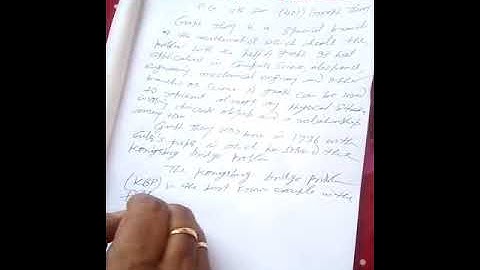 Graph Theory is a special branch
of the mathematics which deals the
problem with the help of graphs. It has
application in Computer Science, electronics
engineering, mechanical enginery and other
branches of Science. A graph can be used
to represent almost any physical situation
involving discrete objects and a relationship
among them
Graph Theory was born in 1736 with
Euler's paper in which he solved the
Konigsberg bridge problem
The Konigsberg bridge problem
(KBP) is the best known example in the